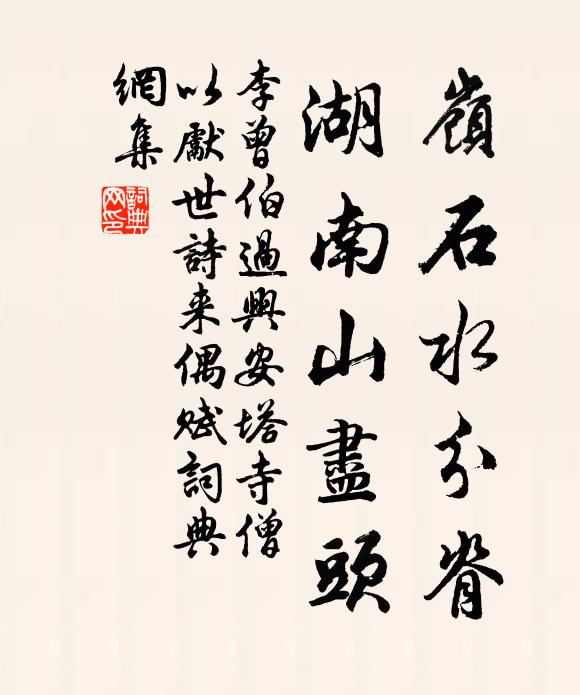 嶺石水分脊
湖南山盡頭
李曾伯過興安塔寺僧
以獻世詩来偶賦詞典
網集
詞典网印